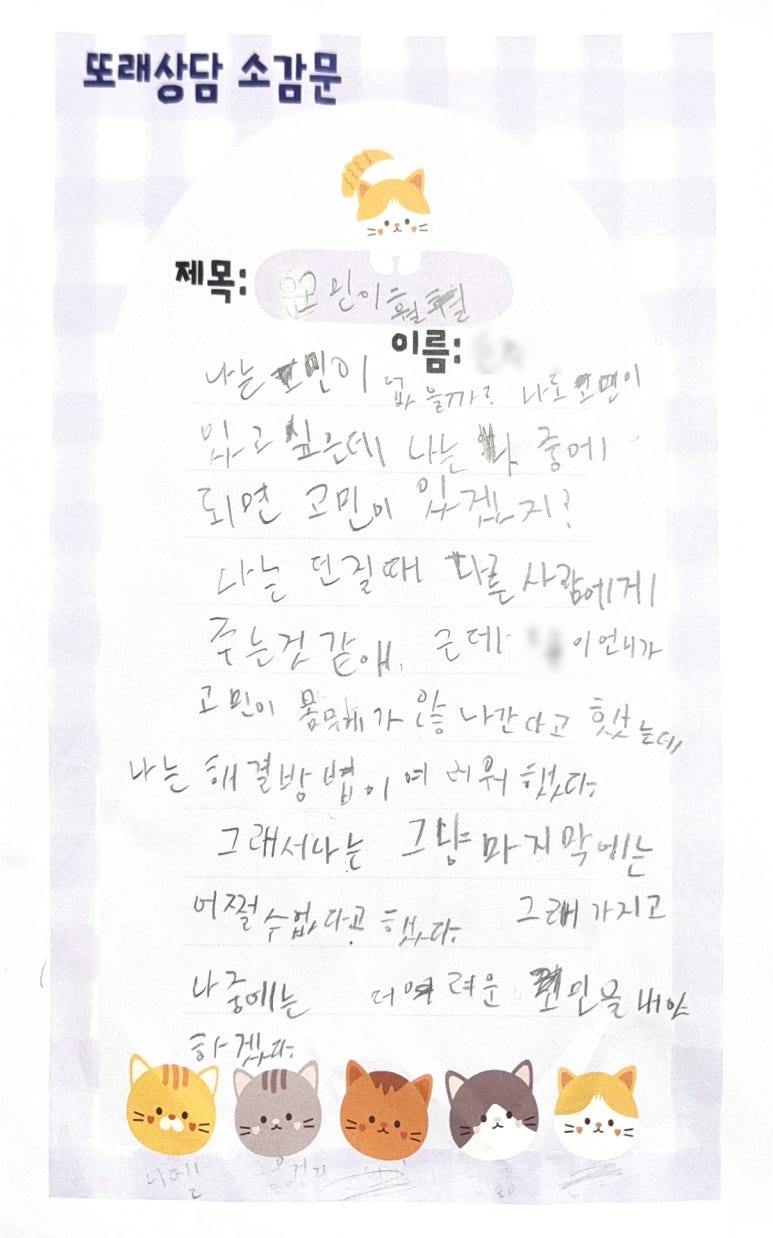 또래상담 소감문
제목: 고민이 훨훨
이름:
나는 고민이 없을까? 나도 고민이
있고 싶은데 나는 나중에
되면 고민이 있겠지?
나는 던질때 다른 사람에게
주는것 같애. 근데 이언니가
고민이 몸무게가 안 나간다고 했는데
나는 해결방법이 어려워 했다.
그래서나는 그냥 마지막에는
어쩔수없다고 했다. 그래가지고
나중에는 더어려운 고민을 내야
하겠다.